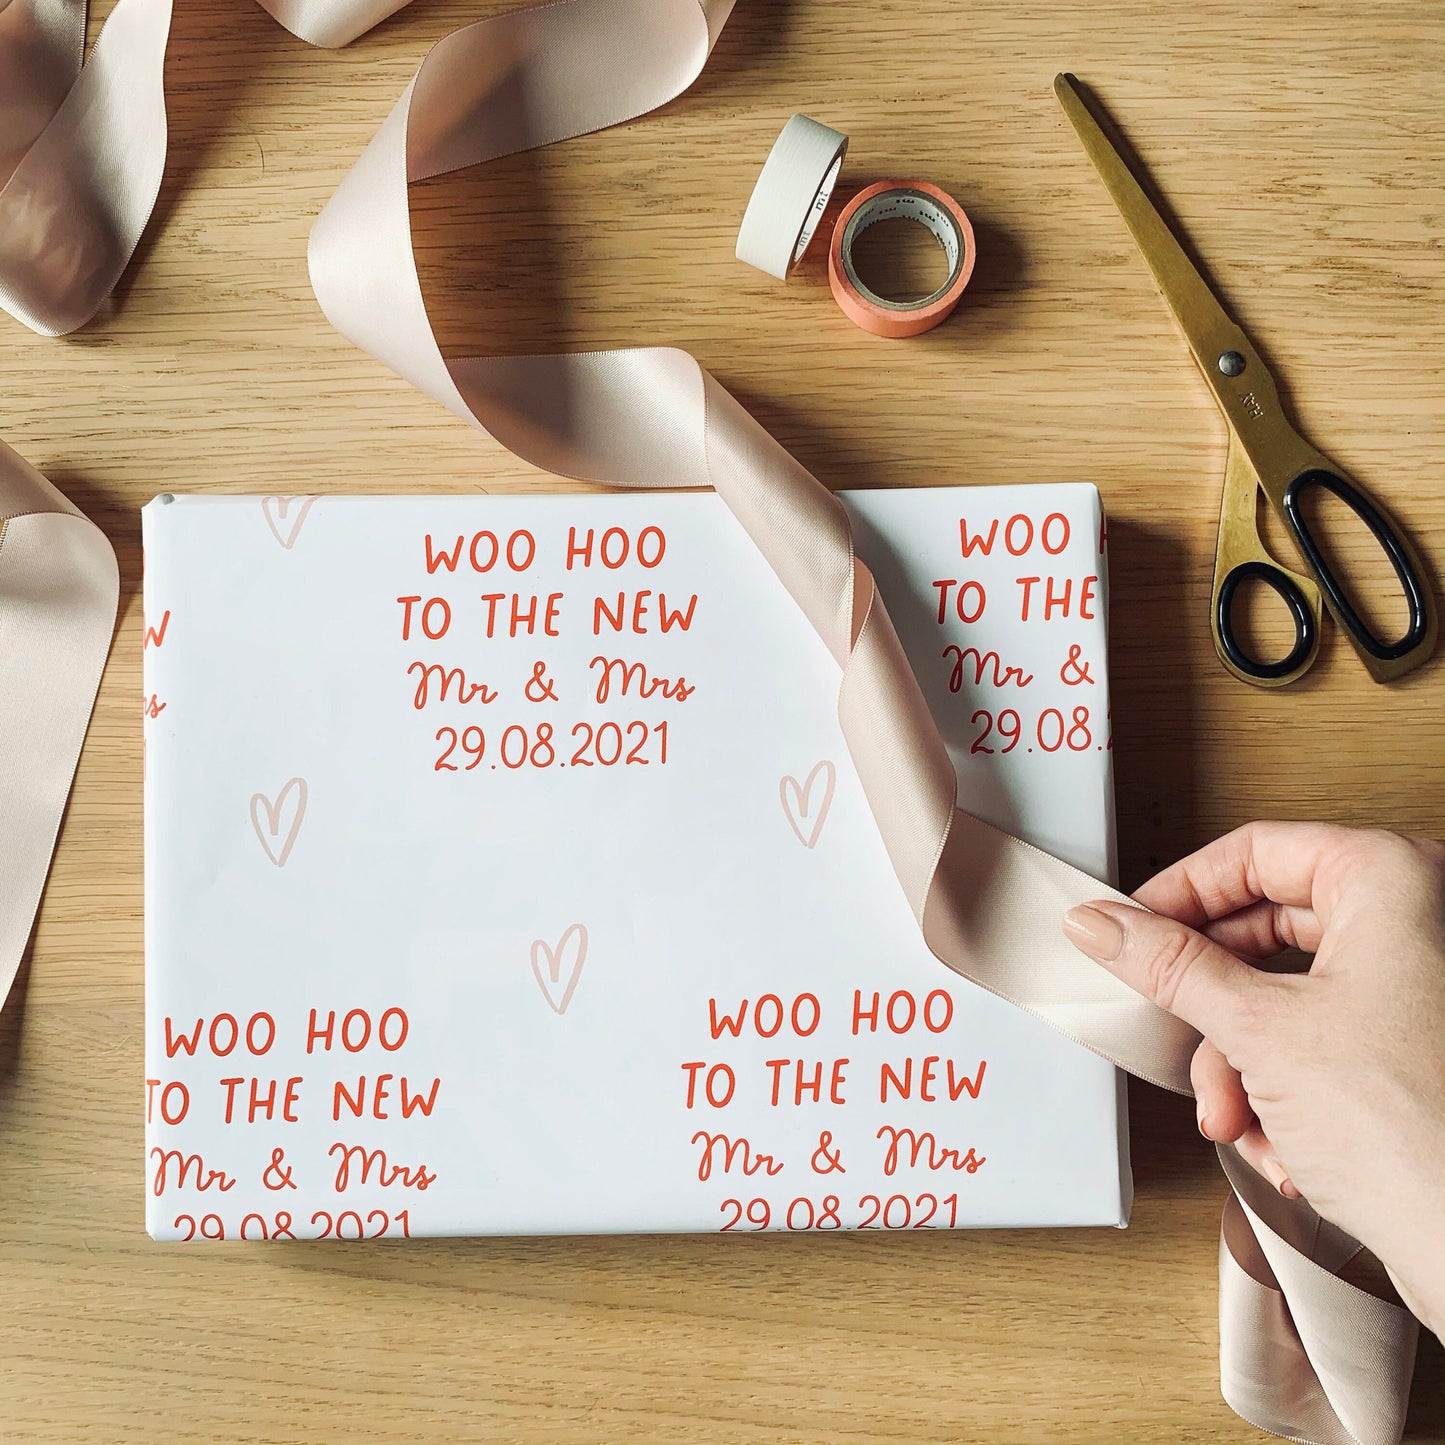 mt
mt
mt
HAY
WOO HOO
TO THE NEW
Mr & Mrs
29.08.2021
WOO H
TO THE
Mr &
29.08.2
W
rs
WOO HOO
TO THE NEW
Mr & Mrs
29.08.2021
WOO HOO
TO THE NEW
Mr & Mrs
29.08.2021